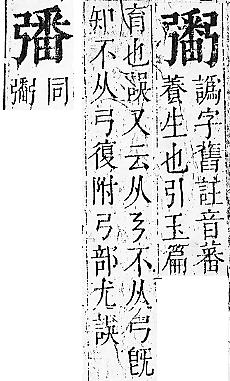 譌字舊註音蕃
養生也引玉篇
育也誤又云从不从弓旣
知不从弓復附弓部尤誤
同